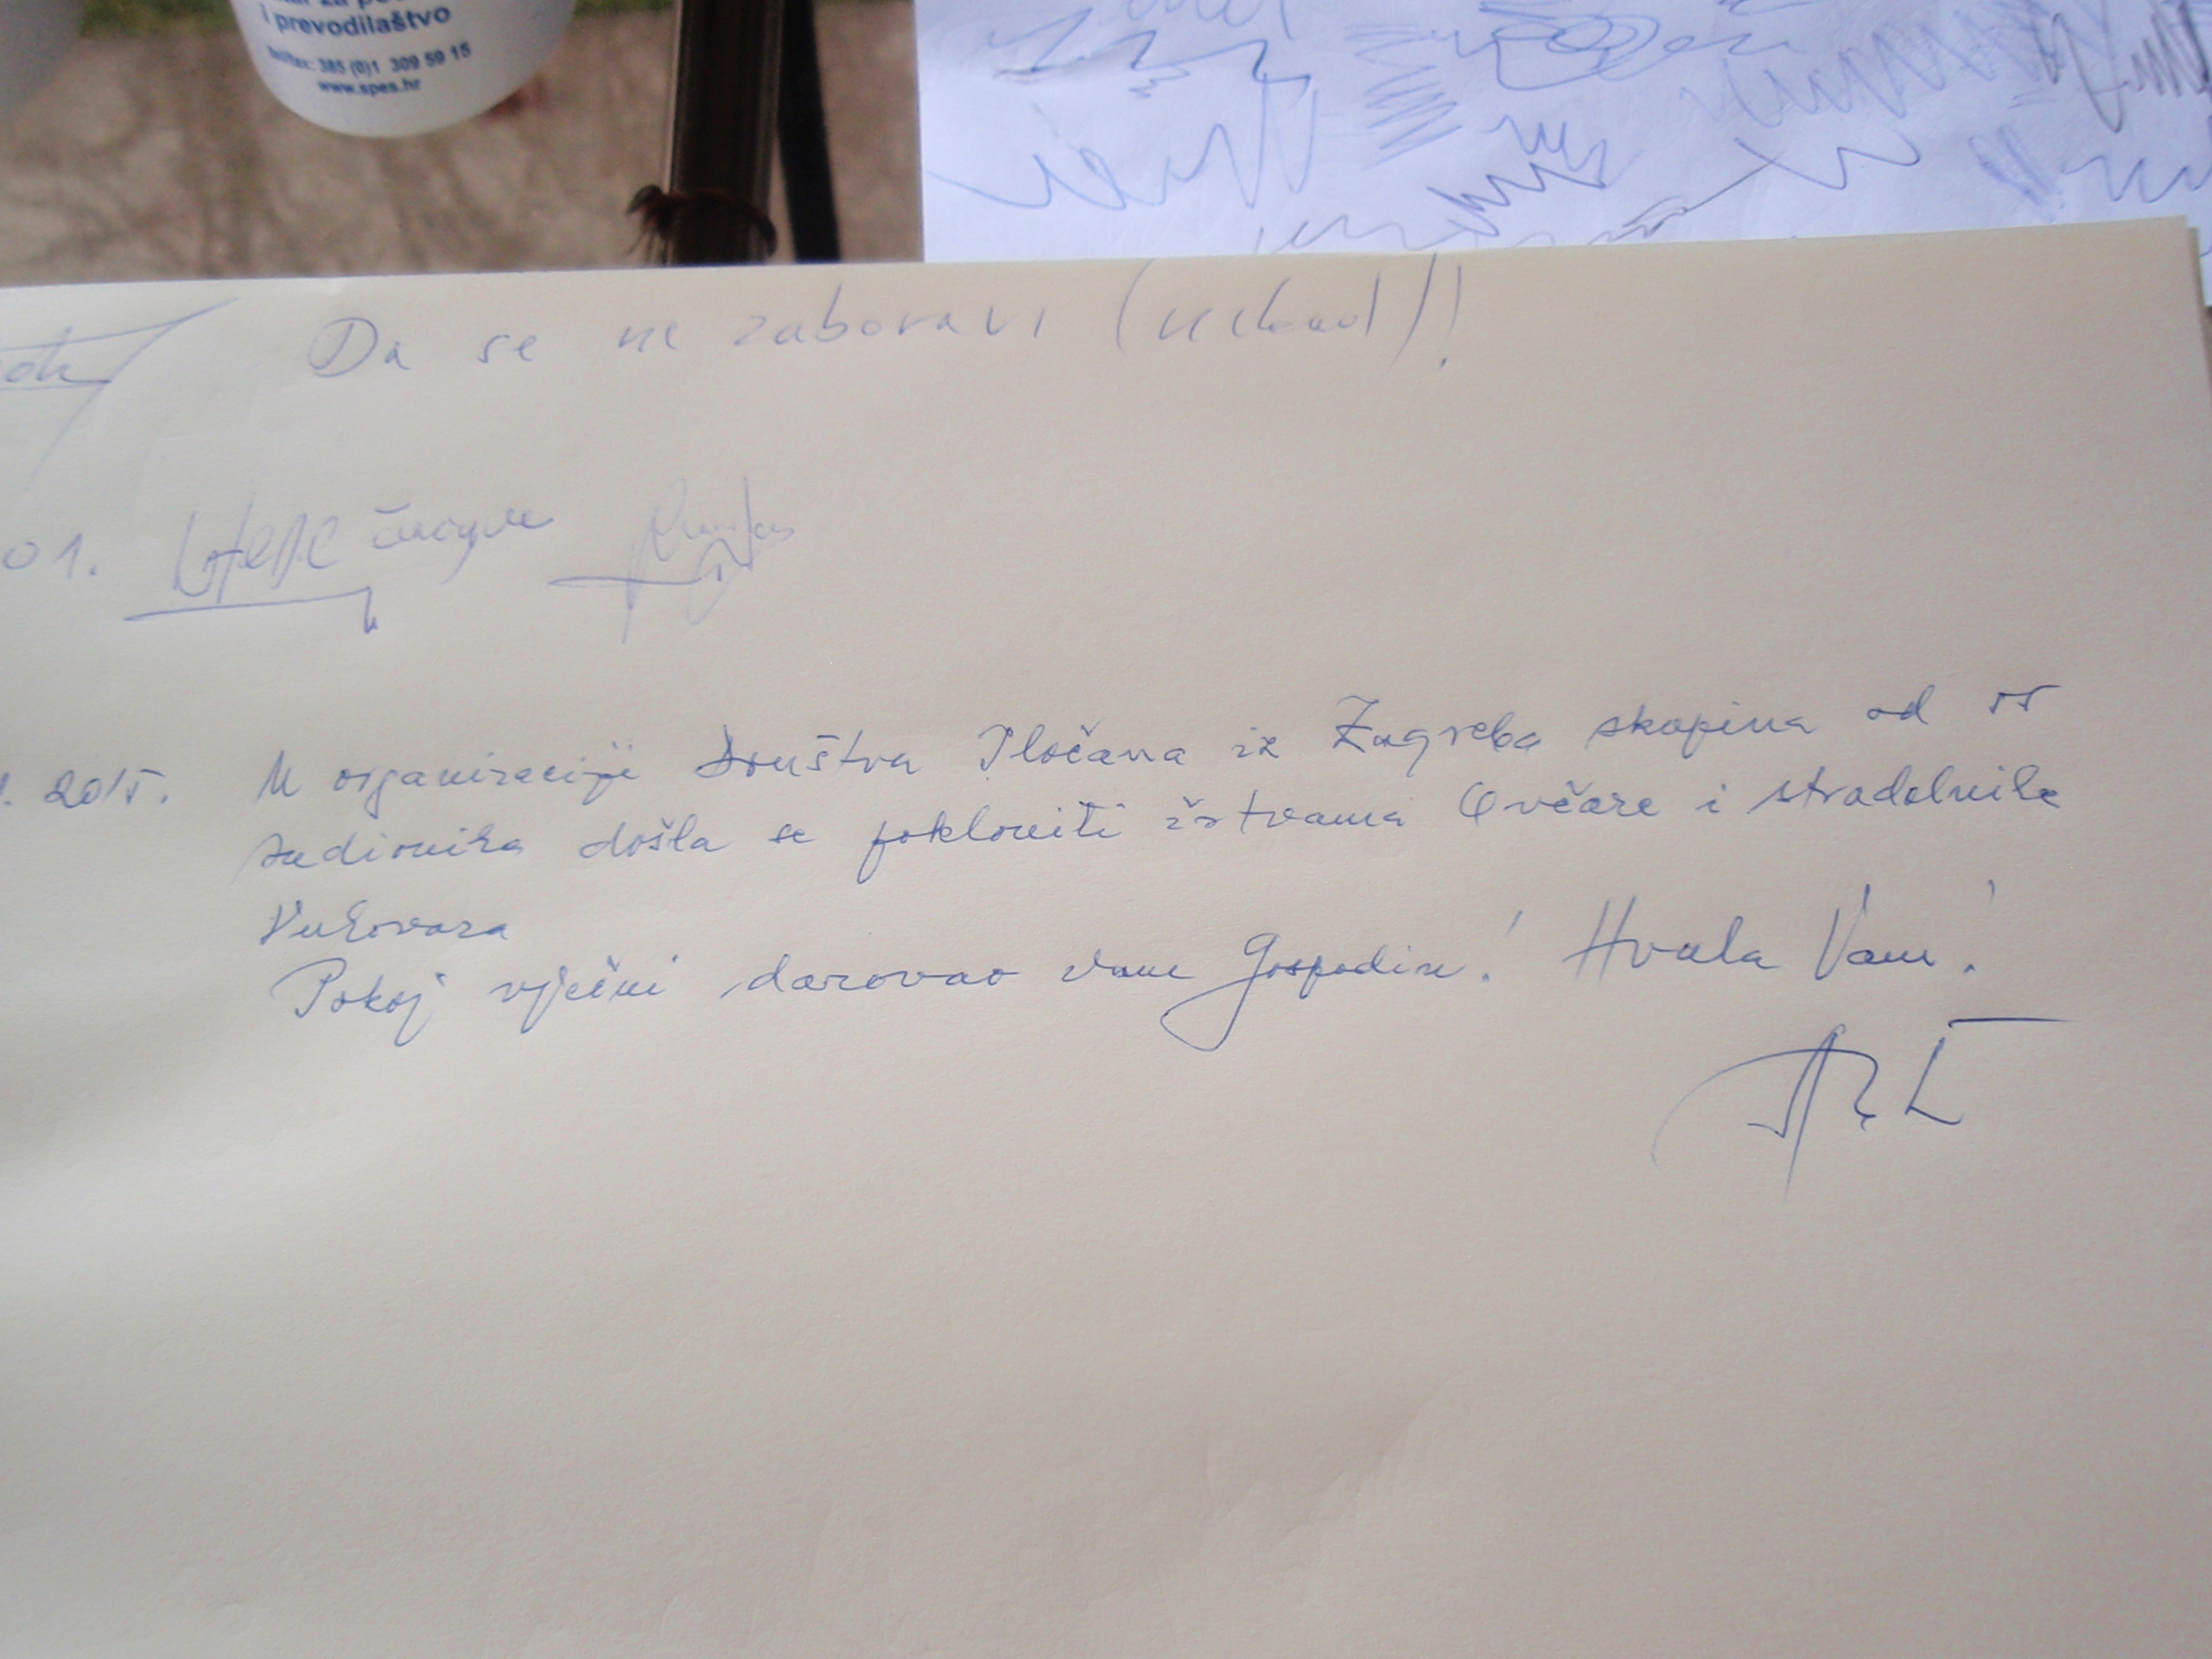 i prevodilaštvo
tel/fax: 385 (0)1 309 59 15
www.spes.hr
Da se ne zaboravi (nikad)!
01.
2015. U organizaciji Društva Pločana iz Zagreba skupina od 55
sudionika došla se pokloniti žrtvama Ovčare i stradalnike
Vukovara
Pokoj vječni darovao vam Gospodin! Hvala Vam!